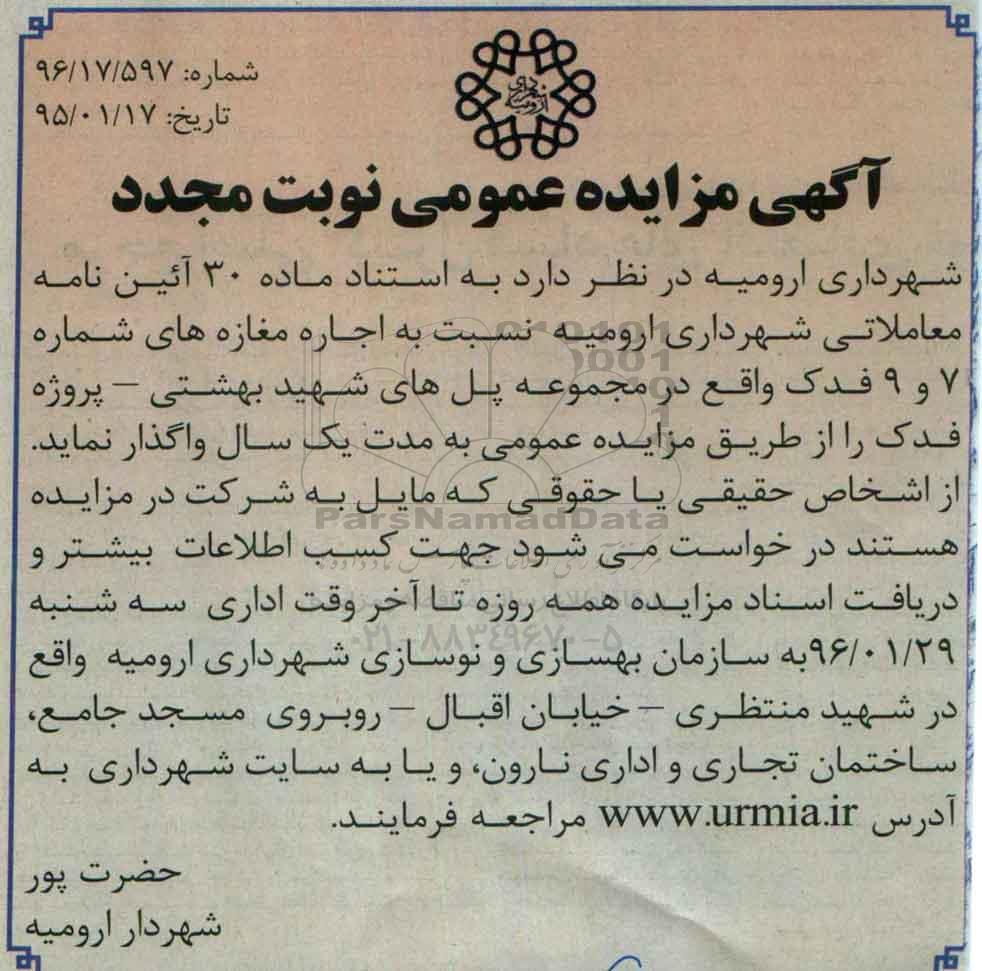 شماره: ۹۶/۱۷/۵۹۷
تاریخ: ۹۵/۰۱/۱۷
آگهی مزایده عمومی نوبت مجدد
شهرداری ارومیه در نظر دارد به استناد ماده ۳۰ آئین نامه
معاملاتی شهرداری ارومیه نسبت به اجاره مغازه های شماره
۷ و ۹ فدک واقع در مجموعه پل های شهید بهشتی – پروژه
فدک را از طریق مزایده عمومی به مدت یک سال واگذار نماید.
از اشخاص حقیقی یا حقوقی که مایل به شرکت در مزایده
ParsNamadData
هستند در خواست می شود جهت کسب اطلاعات بیشتر و
دریافت اسناد مزایده همه روزه تا آخر وقت اداری سه شنبه
۰۲۱-۸۸۳۴۹۶۷۰-۵
۹۶/۰۱/۲۹به سازمان بهسازی و نوسازی شهرداری ارومیه واقع
در شهید منتظری – خیابان اقبال – روبروی مسجد جامع،
ساختمان تجاری و اداری نارون، و یا به سایت شهرداری به
آدرس www.urmia.ir مراجعه فرمایند.
حضرت پور
شهردار ارومیه